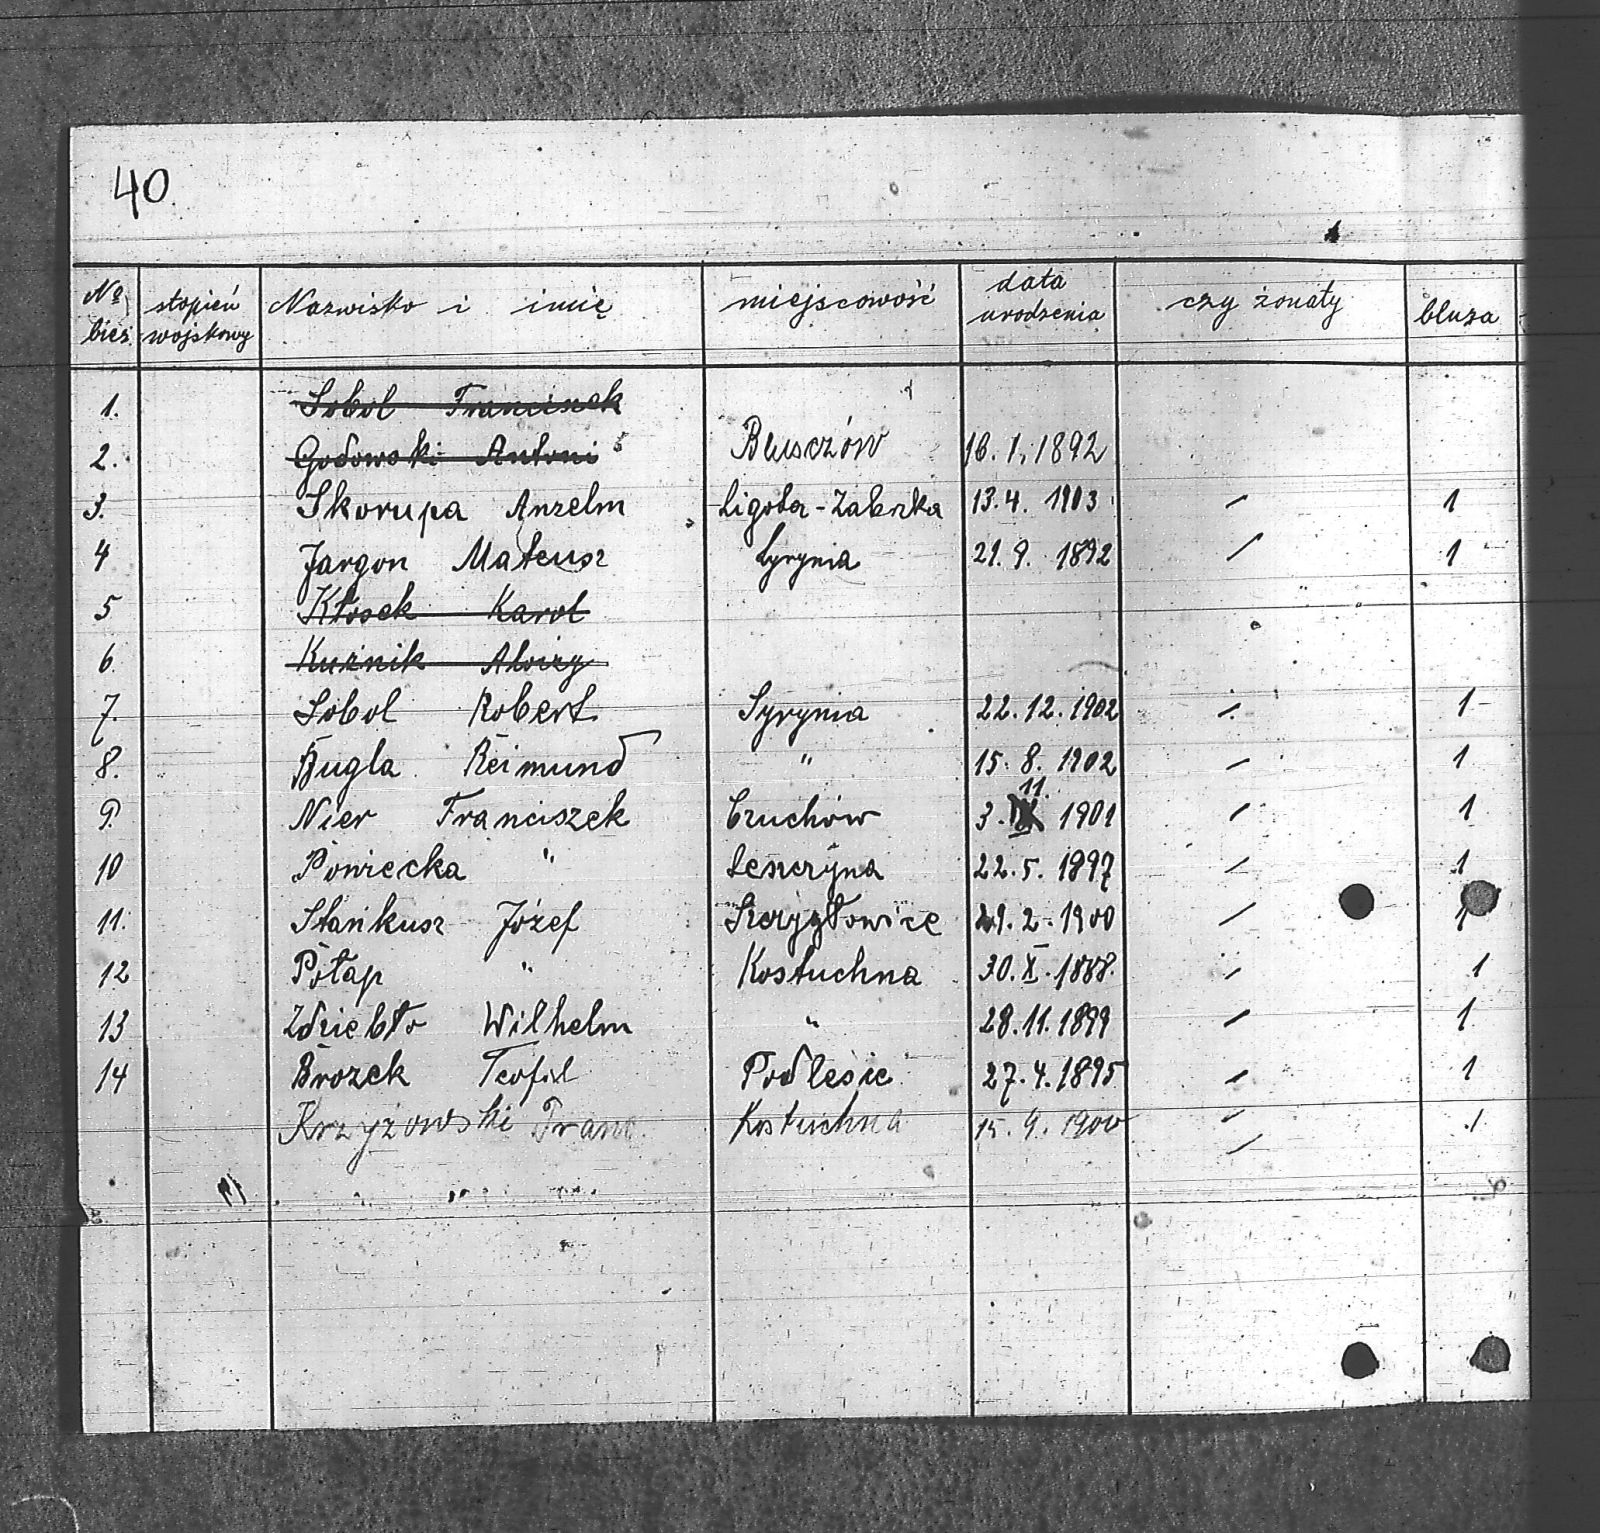 40.
№ bież. stopień wojskowy Nazwisko i imię miejscowość data urodzenia czy żonaty bluza
1. Sobol Franciszek
2. Godowski Antoni Bluszczów 16.1.1892
3. Skorupa Anzelm Ligota-Zabrzka 13.4. 1903 / 1
4 Jargon Mateusz Syrynia 21.9. 1892 / 1
5 Kłosek Karol
6. Kuźnik Alojzy
7. Sobol Robert Syrynia 22.12.1902 / 1
8. Bugla Reimund " 15.8.1902 / 1
9. Nier Franciszek Czuchów 3.11. 1901 / 1
10 Powiecka " Leszczyna 22.5. 1897 / 1
11. Stańkusz Józef 2.1900 / 1
12 Potap " Kostuchna 30.X.1888. / 1
13 Zdziebło Wilhelm " 28.11.1899 / 1
14 Brozek Teofil Podlesie 27.4.1895 / 1
Krzyżowski Franc. Kostuchna 15.9.1900 / 1
/